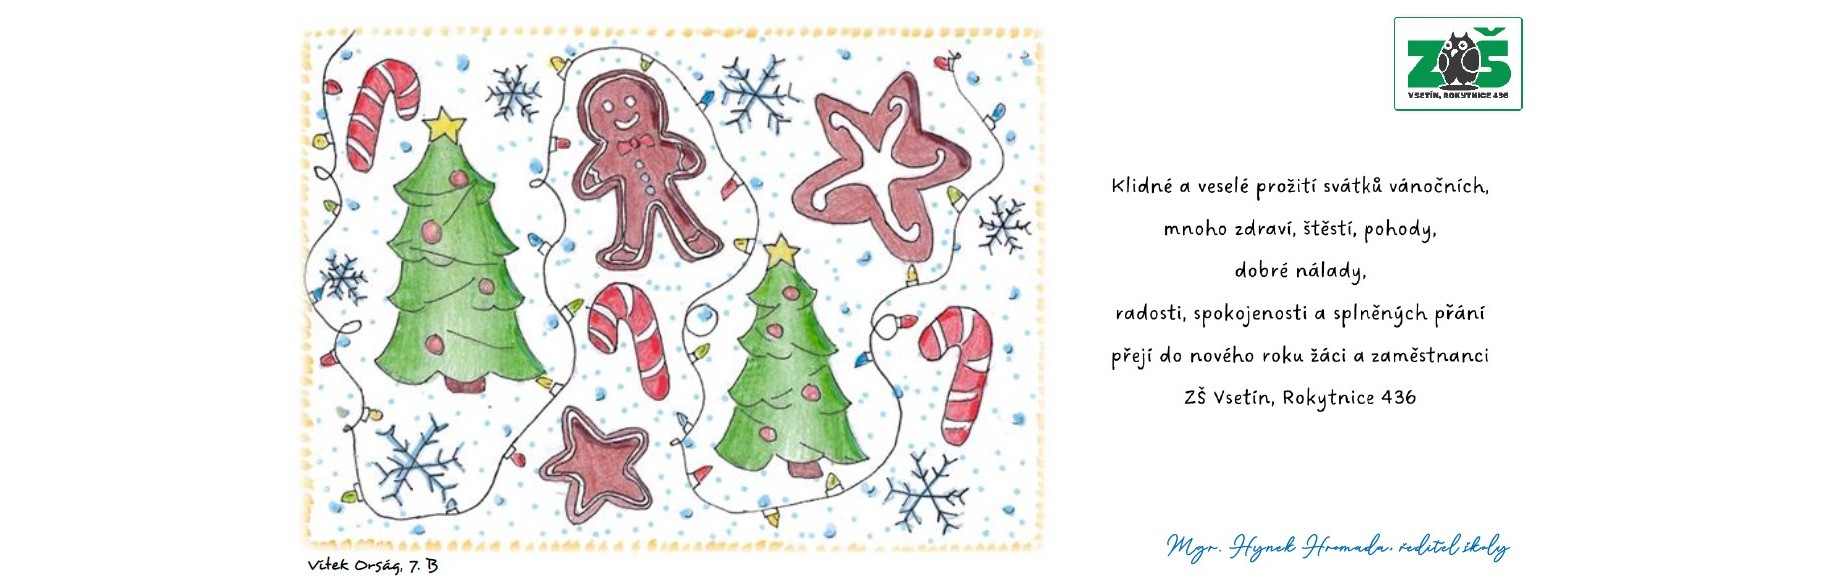 ZŠ
VSETÍN, ROKYTNICE 436
Klidné a veselé prožití svátků vánočních,
mnoho zdraví, štěstí, pohody,
dobré nálady,
radosti, spokojenosti a splněných přání
přejí do nového roku žáci a zaměstnanci
ZŠ Vsetín, Rokytnice 436
Mgr. Hynek Hromada, ředitel školy
Vítek Orság, 7. B